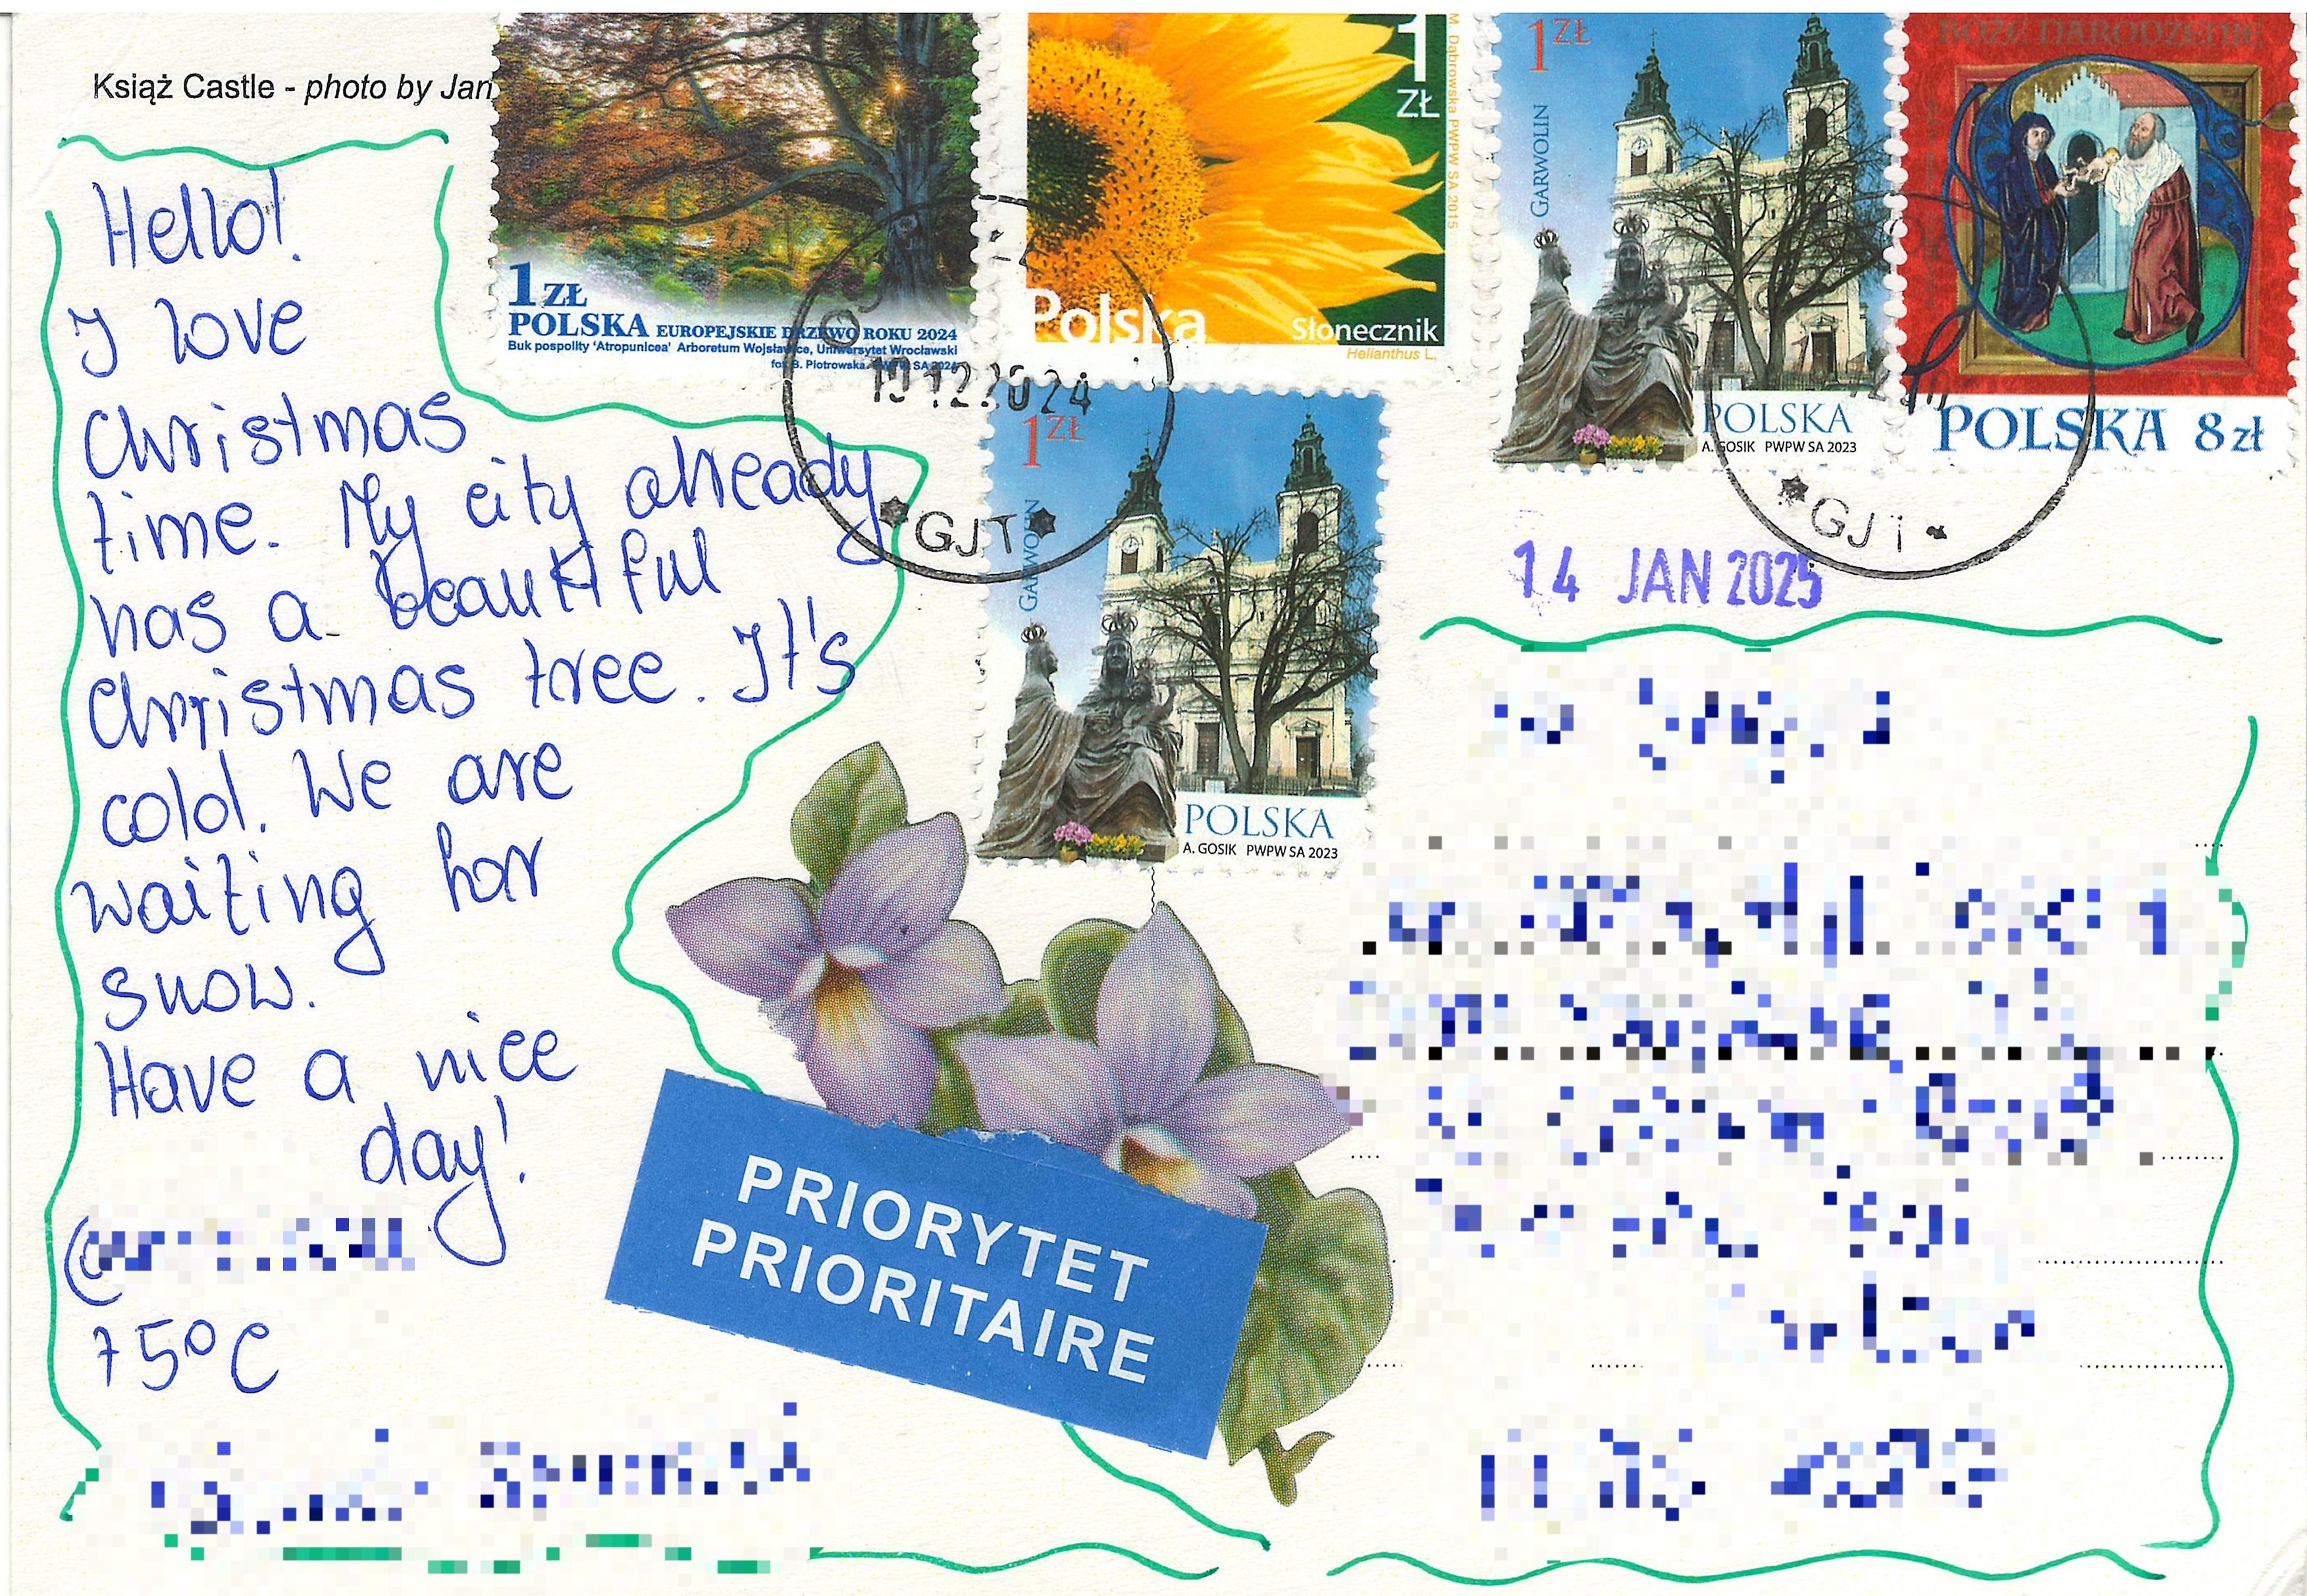 Książ Castle - photo by Jan
1 ZŁ
POLSKA EUROPEJSKIE DRZEWO ROKU 2024
Buk pospolity 'Atropunicea' Arboretum Wojsławice, Uniwersytet Wrocławski
fot. B. Piotrowska PWPW SA 2024
1 ZŁ
M. Dąbrowska PWPW SA 2015
Polska
Słonecznik
Helianthus L.
1 ZŁ
GARWOLIN
POLSKA
A. GOSIK PWPW SA 2023
BOŻE NARODZENIE
POLSKA 8 zł
19.12.2024
GJT
GJ
1 ZŁ
GARWOLIN
POLSKA
A. GOSIK PWPW SA 2023
14 JAN 2025
Hello!
I love
Christmas
time. My city already
has a beautiful
Christmas tree. It's
cold. We are
waiting for
snow.
Have a nice
day!
75°C
PRIORYTET
PRIORITAIRE